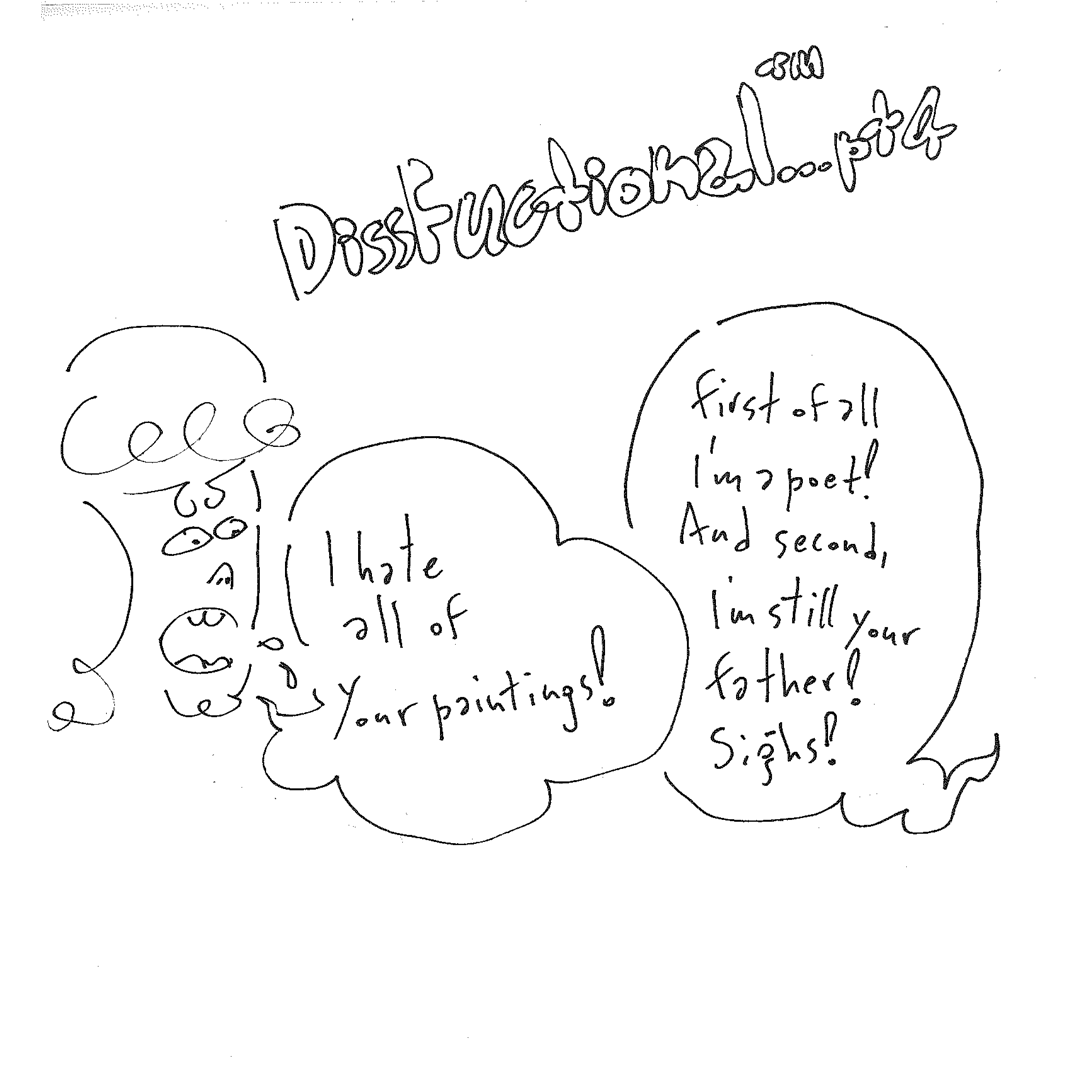 DissFunctional™...pt4
I hate
all of
your paintings!
first of all
I'm a poet!
And second,
I'm still your
father!
Sighs!